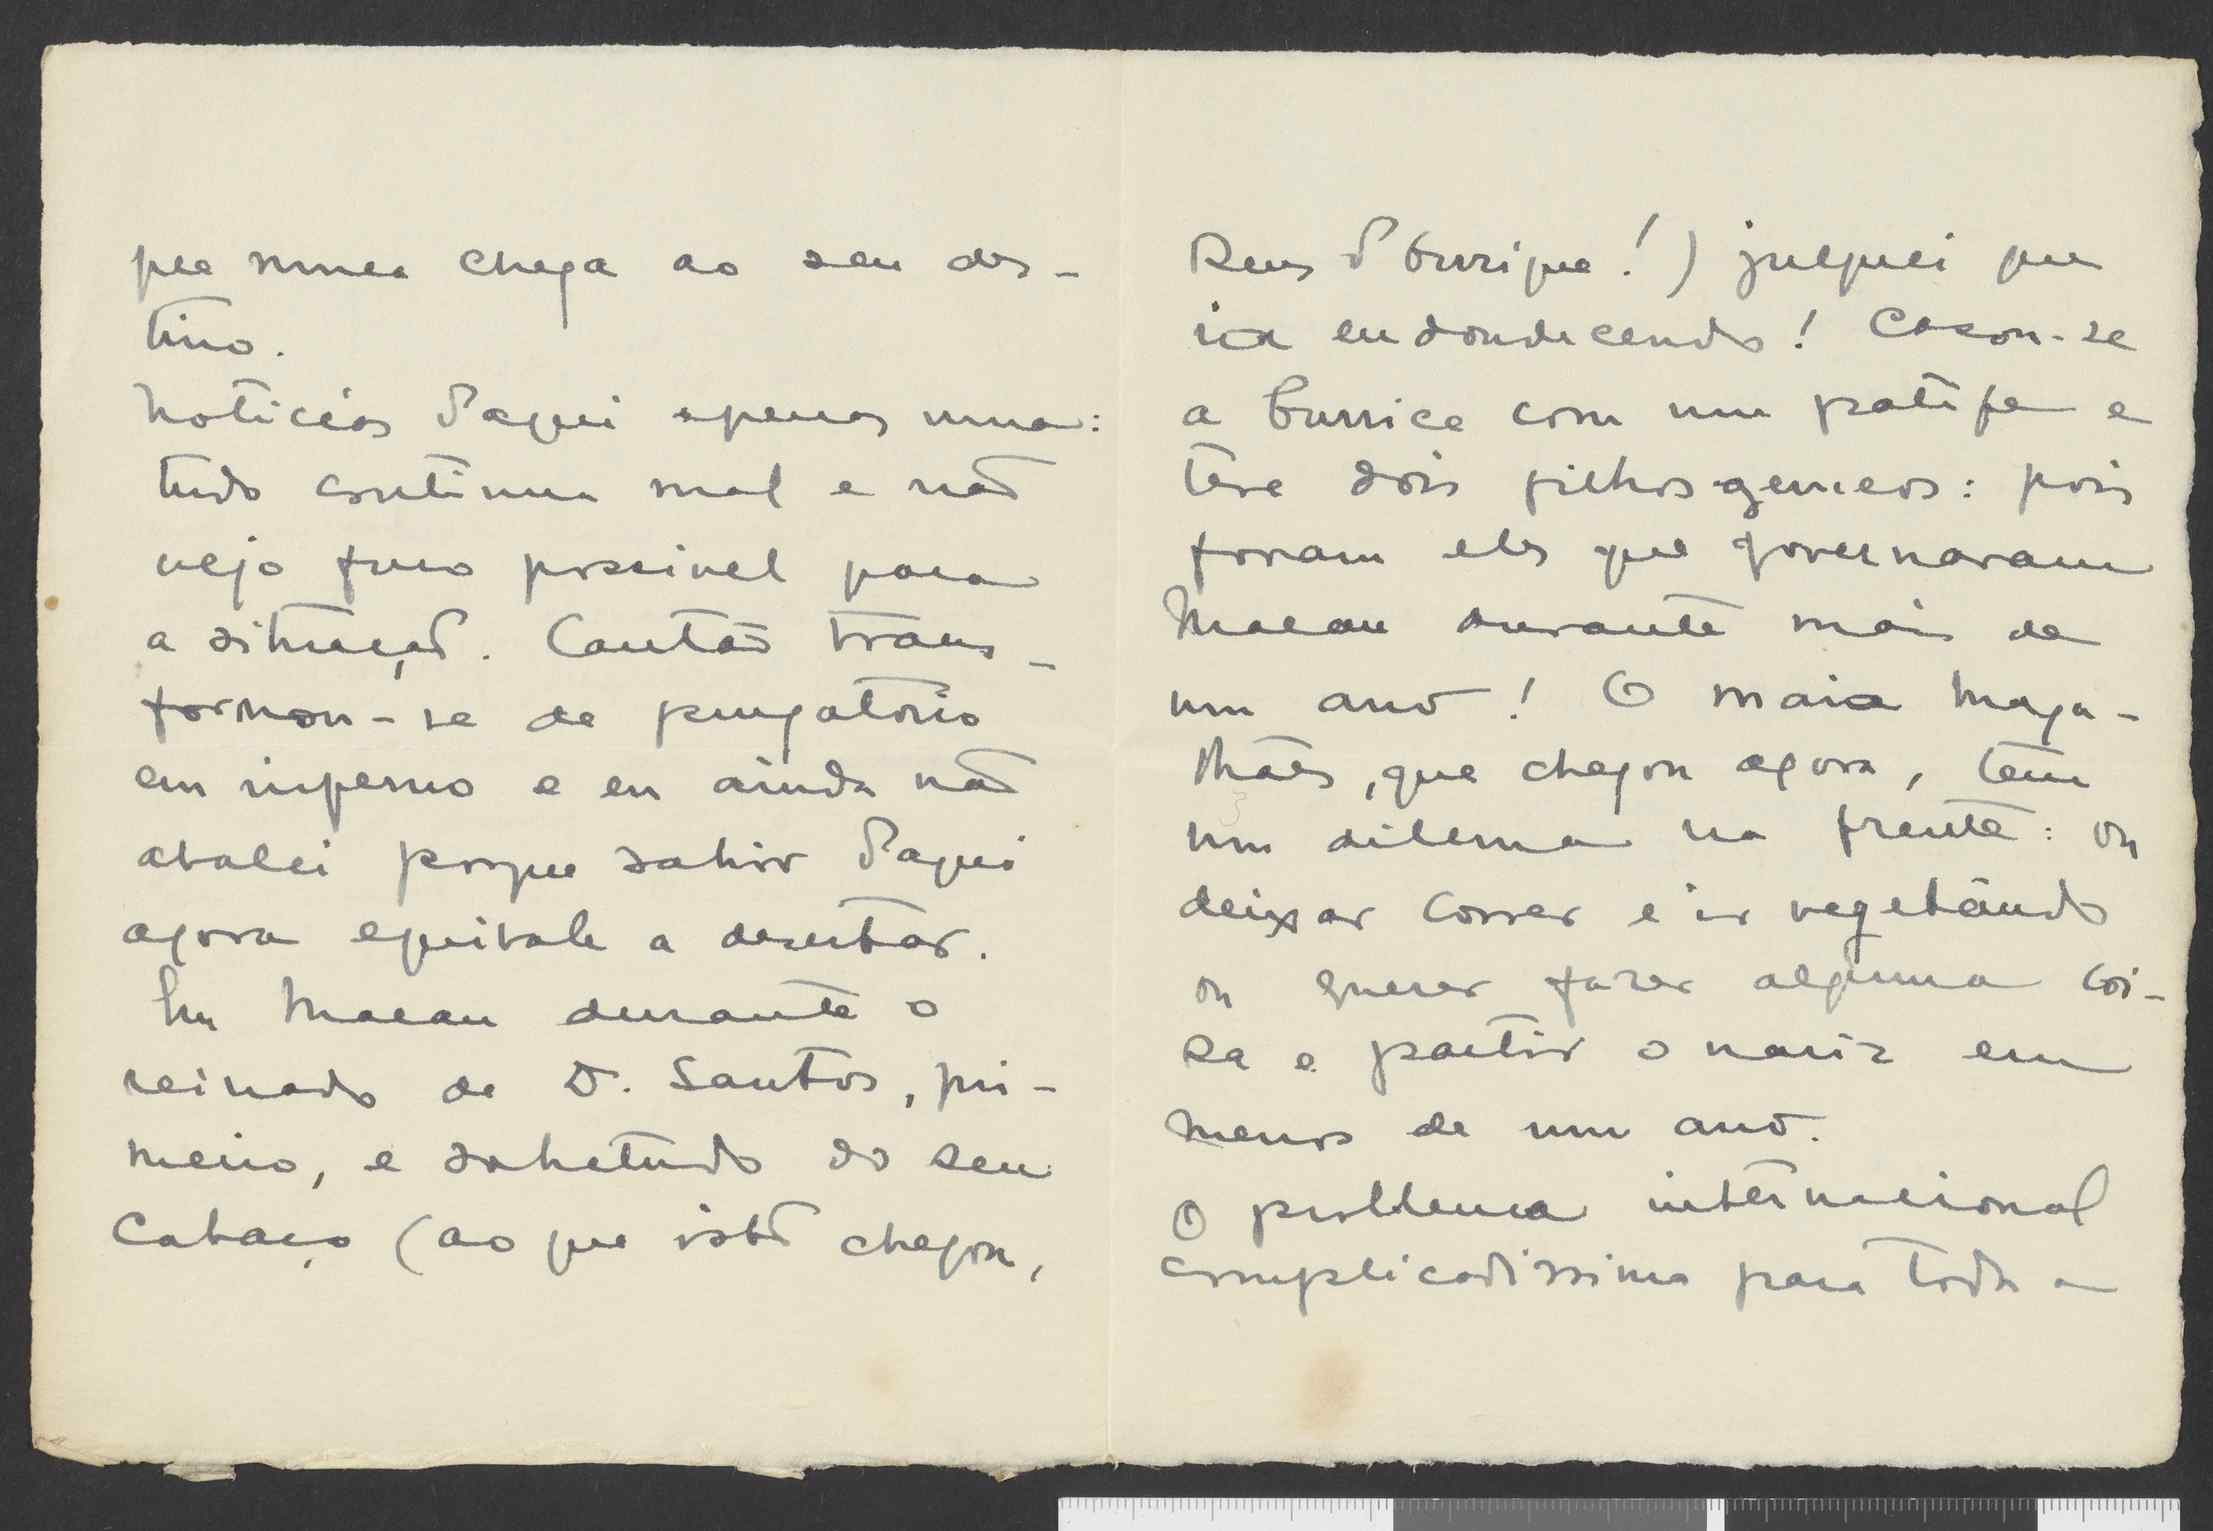 que nunca chega ao seu des-
tino.
Noticias d'aqui apenas uma:
tudo continua mal e não
vejo furo possivel para
a situação. Cantão trans-
formou-se de purgatorio
em inferno e eu ainda não
abalei porque sahir d'aqui
agora equivale a desertar.
Em Macau durante o
reinado de D. Santos, pri-
meiro, e sobretudo do seu
Cabaço (ao que isto chegou,
Deus d'Ourique!) julguei que
ia endoudecendo! Casou-se
a burrice com um patife e
teve dois filhos gemeos: pois
foram eles que governaram
Macau durante mais de
um ano! O Maia Maga-
lhães, que chegou agora, tem
um dilema na frente: ou
deixar correr e ir vegetando
ou querer fazer alguma coi-
sa e partir o nariz em
menos de um ano.
O problema internacional
complicadissimo para toda a